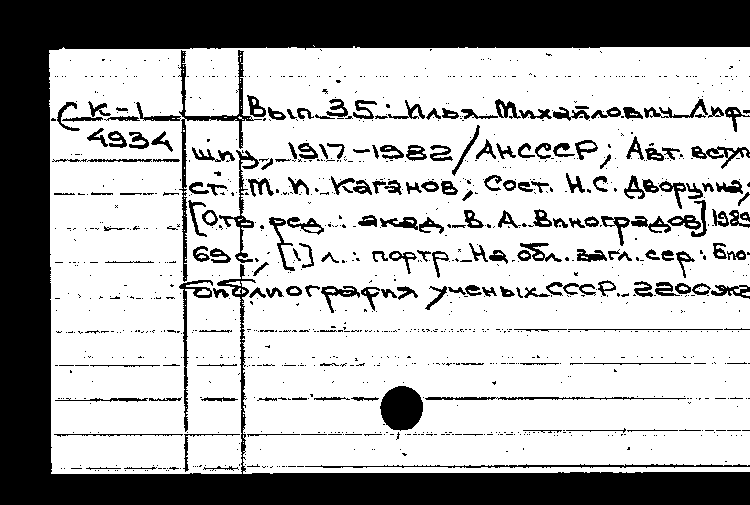 С К-1 Вып. 35: Илья Михайлович Лиф-
4934
шиц, 1917-1982/АН СССР; Авт. вступ.
ст. М. И. Каганов; Сост. Н.С. Дворцина;
[Отв. ред.: акад. В. А. Виноградов] 1989
69 с., [1] л.: портр. На обл. загл. сер.: Био-
библиография ученых СССР. 2200экз